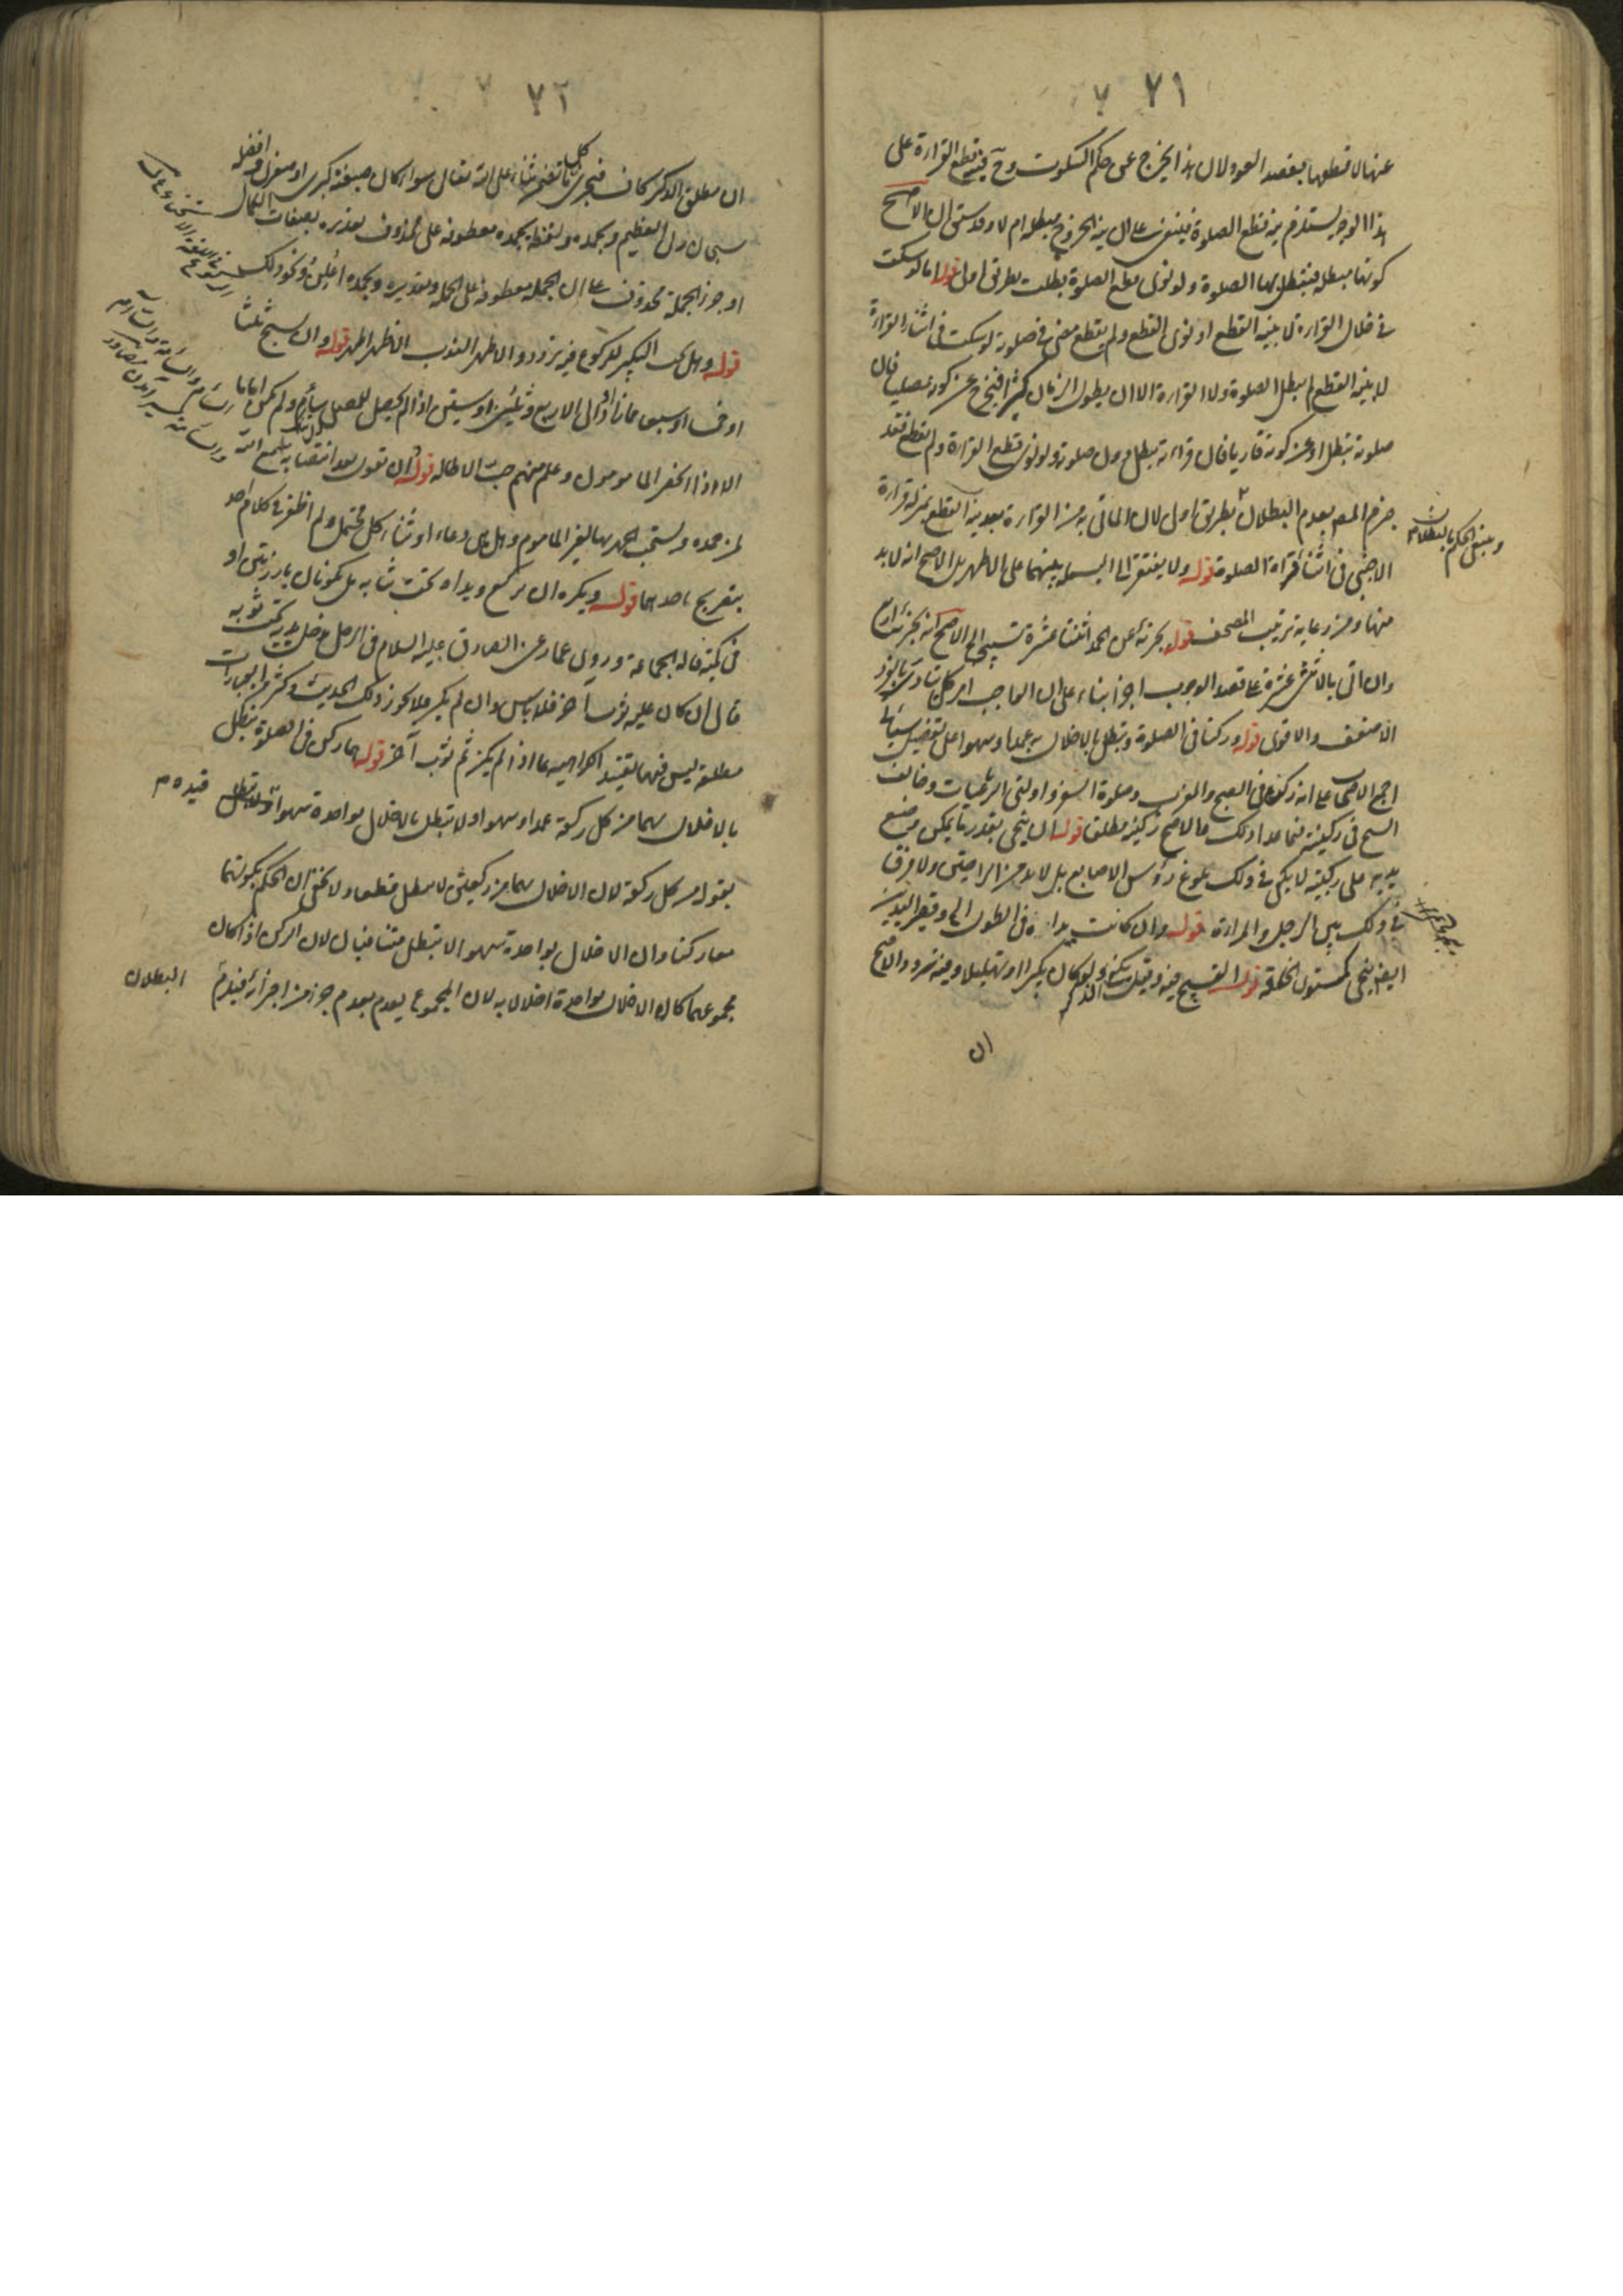 ٧١
عنها لا قطعها بقصد العود لان هذا يخرج عن حكم السكوت وح فقطع القراءة على
هذا الوجه يستلزم نية قطع الصلوة فيبنى على ان نية الخروج مبطلة ام لا وقد سبق ان الاصح
كونها مبطلة فتبطل بها الصلوة ولو نوى قطع الصلوة بطلت بطريق اولى قوله اما لو سكت
في خلال القراءة لا بنية القطع او نوى القطع ولم يقطع مضى في صلوته لو سكت في اثناء القراءة
لا بنية القطع لم يبطل الصلوة ولا القراءة الا ان يطول الزمان كثيرا فيخرج عن كونه مصليا فان
صلوته تبطل او عن كونه قاريا فان قراءته تبطل دون صلوته ولو نوى قطع القراءة ولم يقطع فقد
جزم المصر بعدم البطلان بطريق اولى لان الماتي به من القراءة بعد نية القطع بمنزلة قراءة
وينبغي الحكم بالبطلان
الاجنبي في اثناء قراءة الصلوة قوله ولا يفتقر الى البسملة بينهما على الاظهر بل الاصح انه لا بد
منها ومن رعاية ترتيب المصحف قوله يجزئه عن الحمد اثنتا عشرة تسبيحة الاصح انه يجزئ اربع
وان اتى بالاثنتى عشرة على قصد الوجوب اجزأ بناء على ان الواجب الكلي يتادى بالفرد
الاضعف والاقوى قوله وركنا في الصلوة وتبطل بالاخلال به عمدا وسهوا على تفصيل سياتي
اجمع الاصحاب على انه ركن في الصبح والمغرب وصلوة السفر واولتى الرباعيات وخالف
الشيخ في ركنيته فيما عدا ذلك فالاصح ركنيته مطلقا قوله ان ينحني بقدر ما يمكن من وضع
يديه على ركبتيه لا يكفي في ذلك بلوغ رؤس الاصابع بل لا بد من الراحتين ولا فرق
في ذلك بين الرجل والمراءة قوله وان كانت يداه في الطول
انحنى كمستوى الخلقة قوله التسبيح فيه وقيل يكفي الذكر ولو كان تكبيرا او تهليلا وفيه تردد والاصح
ان
٧٢
ان مطلق الذكر كاف فيجزى كل ما تضمن ثناء على الله تعالى سواء كان صيغة كبرى او صغرى وافضله
سبحان ربي العظيم وبحمده ولفظة بحمده معطوفة على محذوف تقديره بصفات الكمال
او جزء الجملة محذوف على ان الجملة معطوفة على الجملة وتقديره وبحمده اثني ونحو ذلك
قوله وهل يجب التكبير للركوع فيه تردد والاظهر الندب الاظهر اظهر قوله وان يسبح ثلثا
او خمسا او سبعا فما زاد الى الاربع وثلثين او ستين اذا لم يحصل للمصلى سأم ولم يكن اماما
الا اذا انحصر المامومون وعلم منهم حب الاطالة قوله ان يقول بعد انتصابه سمع الله
لمن حمده ويستحب الجهر بها لغير الماموم وهل هي دعاء او ثناء كل محتمل ولم اظفر في كلام احد
بتصريح باحدهما قوله ويكره ان يركع ويداه تحت ثيابه بل تكونان بارزتين او
في كميه قاله الجماعة وروى عمار عن الصادق عليه السلام في الرجل يدخل يديه تحت ثوبه
قال ان كان عليه ثوب اخر فلا باس وان لم يكن فلا يجوز ذلك الحديث وكثير من العبارات
مطلقة ليس فيها تقييد الكراهية بما اذا لم يكن ثم ثوب آخر قوله هما ركن في الصلوة تبطل
بالاخلال بهما من كل ركعة عمدا وسهوا ولا تبطل بالاخلال بواحدة سهوا قيده م
بقوله من كل ركعة لان الاخلال بهما من ركعتين لا يبطل قطعا ولا يخفى ان الحكم بكونهما
معا ركنا وان الاخلال بواحدة سهوا لا تبطل متنافيان لان الركن اذا كان
مجموعهما كان الاخلال بواحدة اخلال به لان المجموع يعدم بعدم جزء من اجزائه فيلزم البطلان